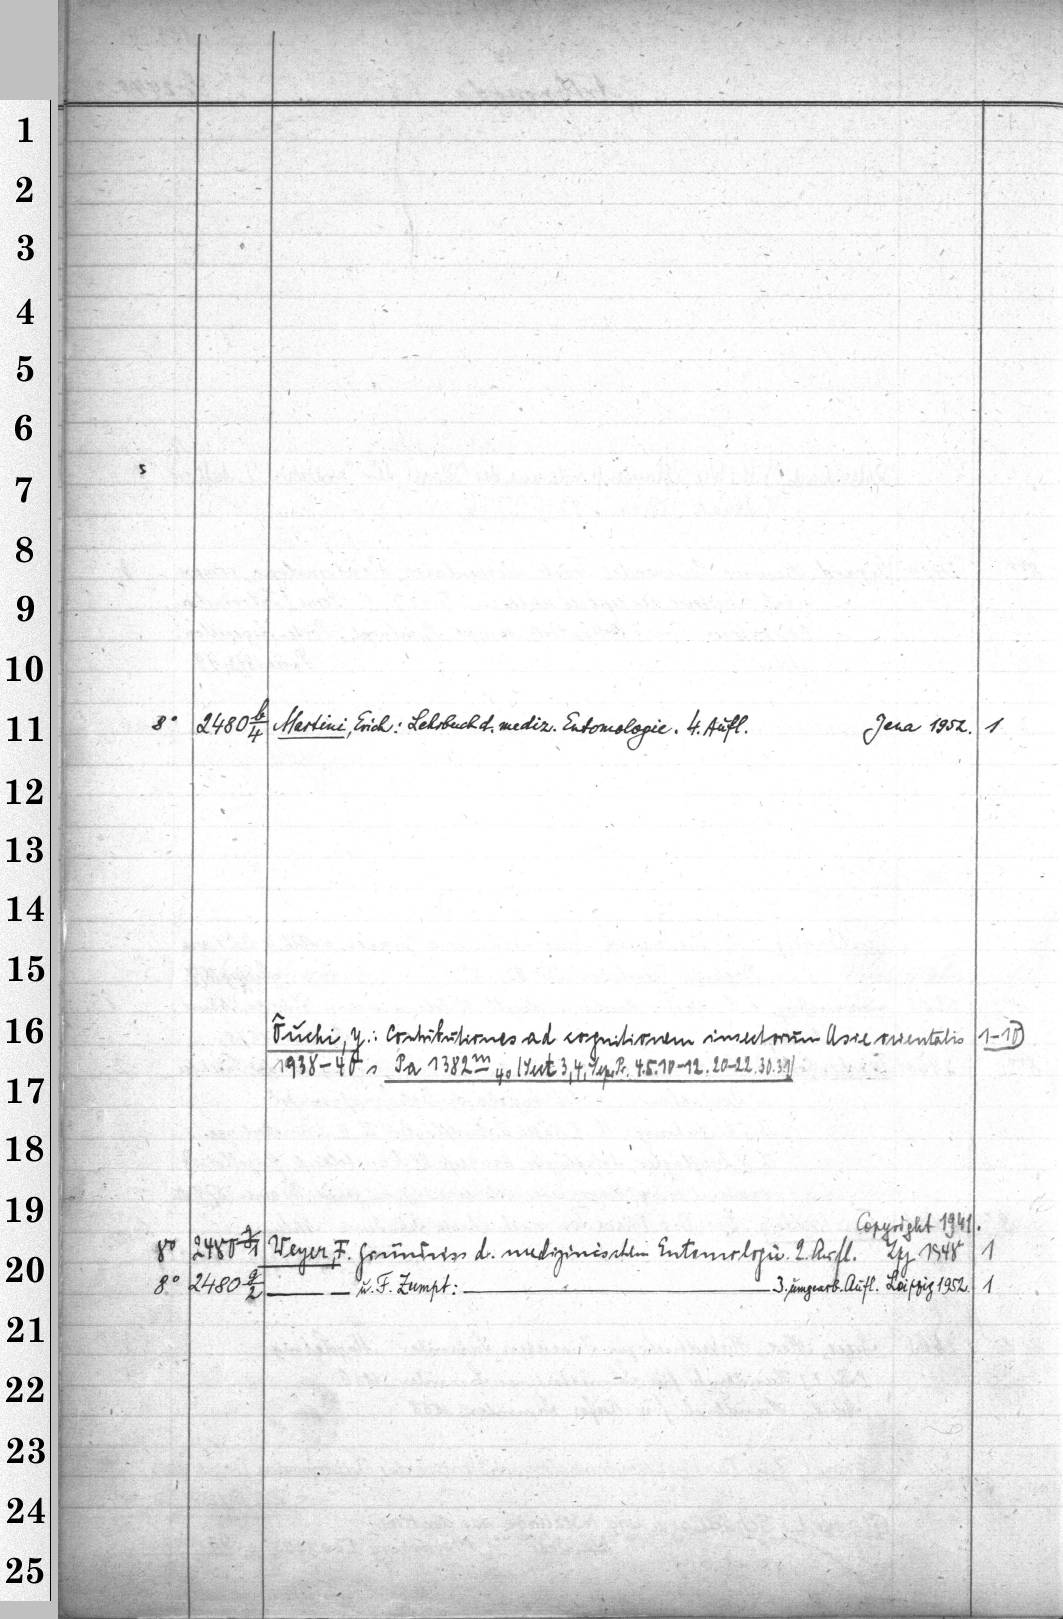 1
2
3
4
5
6
7
8
9
10
11
8° 2480 b/4 Martini, Erich: Lehrbuch d. mediz. Entomologie. 4. Aufl. Jena 1952. 1
12
13
14
15
16
Ôuchi, Y.: Contributiones ad cognitionem insectorum Asiae orientalis 1-10)
1938-40 s Pa 1382 m 40 (Sect 3,4, Sep. Pr. 4.5.10-12. 20-22. 30.31)
17
18
19
Copyright 1941.
8° 2480 Weyer, F. Grundriss d. medizinischen Entomologie. 2. Aufl. Lpz 1948 1
20
8° 2480 g/2 — — u. F. Zumpt: — 3. umgearb. Aufl. Leipzig 1952. 1
21
22
23
24
25